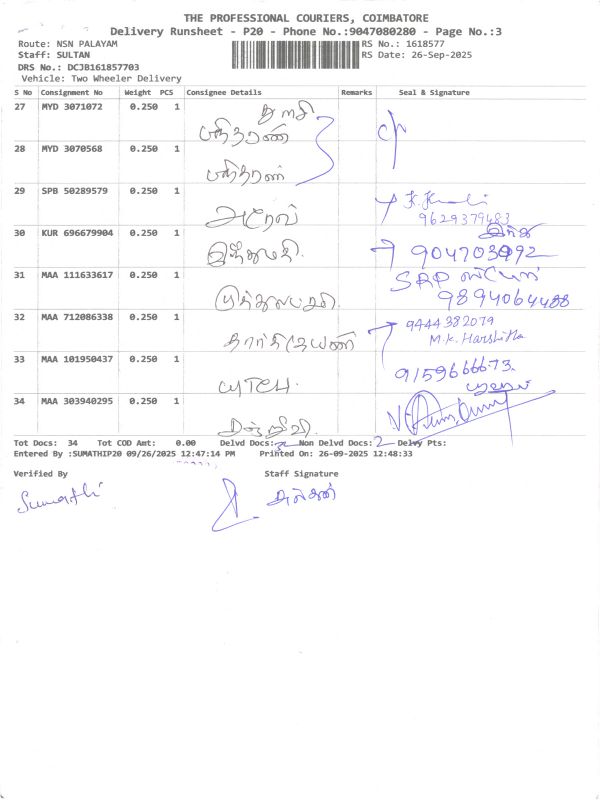 THE PROFESSIONAL COURIERS, COIMBATORE
Delivery Runsheet - P20 - Phone No.:9047080280 - Page No.:3
Route: NSN PALAYAM RS No.: 1618577
Staff: SULTAN RS Date: 26-Sep-2025
DRS No.: DCJB161857703
Vehicle: Two Wheeler Delivery
S No Consignment No Weight PCS Consignee Details Remarks Seal & Signature
27 MYD 3071072 0.250 1 துளசி
பவித்ரன்
28 MYD 3070568 0.250 1
பவித்ரன்
29 SPB 50289579 0.250 1
9629379483
30 KUR 696679904 0.250 1 இந்துமதி.
31 MAA 111633617 0.250 1 SRP
9894064488
32 MAA 712086338 0.250 1 9444382079
M.K. Harshitha
33 MAA 101950437 0.250 1 9159666673.
34 MAA 303940295 0.250 1
Tot Docs: 34 Tot COD Amt: 0.00 Delvd Docs: Non Delvd Docs: 2 Delvy Pts:
Entered By :SUMATHIP20 09/26/2025 12:47:14 PM Printed On: 26-09-2025 12:48:33
Verified By Staff Signature
Sumathi சுல்தான்